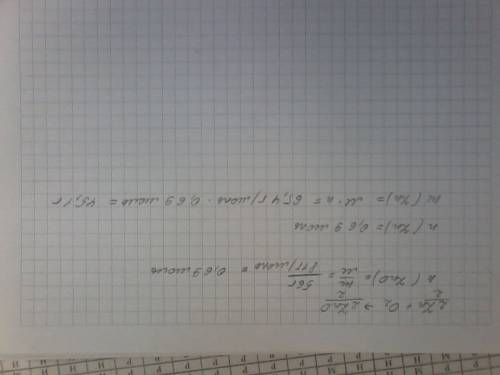 2Zn + O₂ → 2ZnO
2 2
n(ZnO) = m/M = 56г / 81г/моль = 0,69 моль
n(Zn) = 0,69 моль
m(Zn) = M · n = 65,4 г/моль · 0,69 моль = 45,1 г